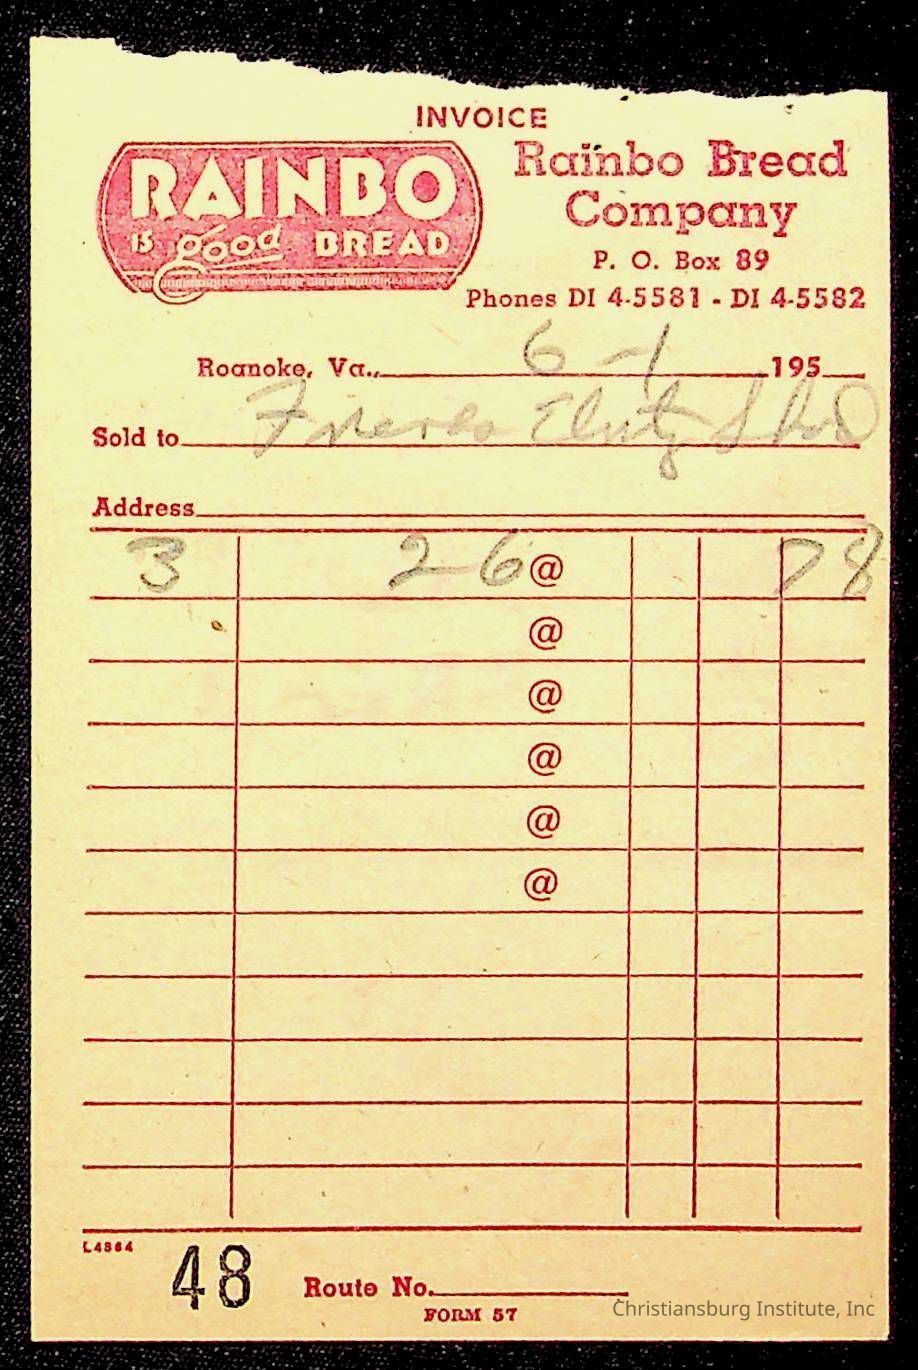 INVOICE
RAINBO
IS good BREAD
Rainbo Bread
Company
P. O. Box 89
Phones DI 4-5581 - DI 4-5582
Roanoke, Va., 6-1 195
Sold to
Address
3 26 @ 78
@
@
@
@
@
L4864
48 Route No.
FORM 57
Christiansburg Institute, Inc